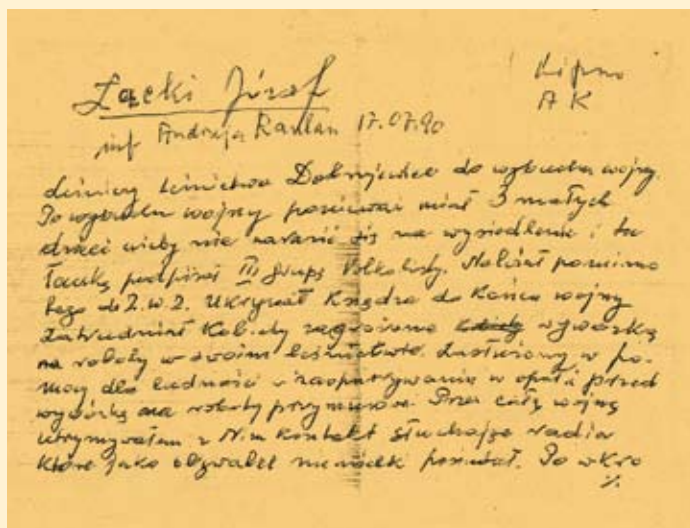 Łącki Józef
Lipno
A K
inf Andrzeja Raulan 17.07.90
Leśniczy Leśnictwa do wybuchu wojny.
Po wybuchu wojny ponieważ miał 3 małych
dzieci ażeby nie narazić się na wysiedlenie i tu
łaczkę podpisał III grupę Volkslisty. Należał pomimo
tego do Z.W.Z. Ukrywał Księdza do końca wojny
Zatrudniał Kobiety zagrożone wywózką
na roboty w swoim Leśnictwie. Zasłużony w po-
mocy dla ludności w zaopatrywaniu w opał i przed
wywózką na roboty przymusowe. Przez całą wojnę
utrzymywałem z Nim kontakt słuchając radia
które jako obywatel niemiecki posiadał. Po wkro
%.